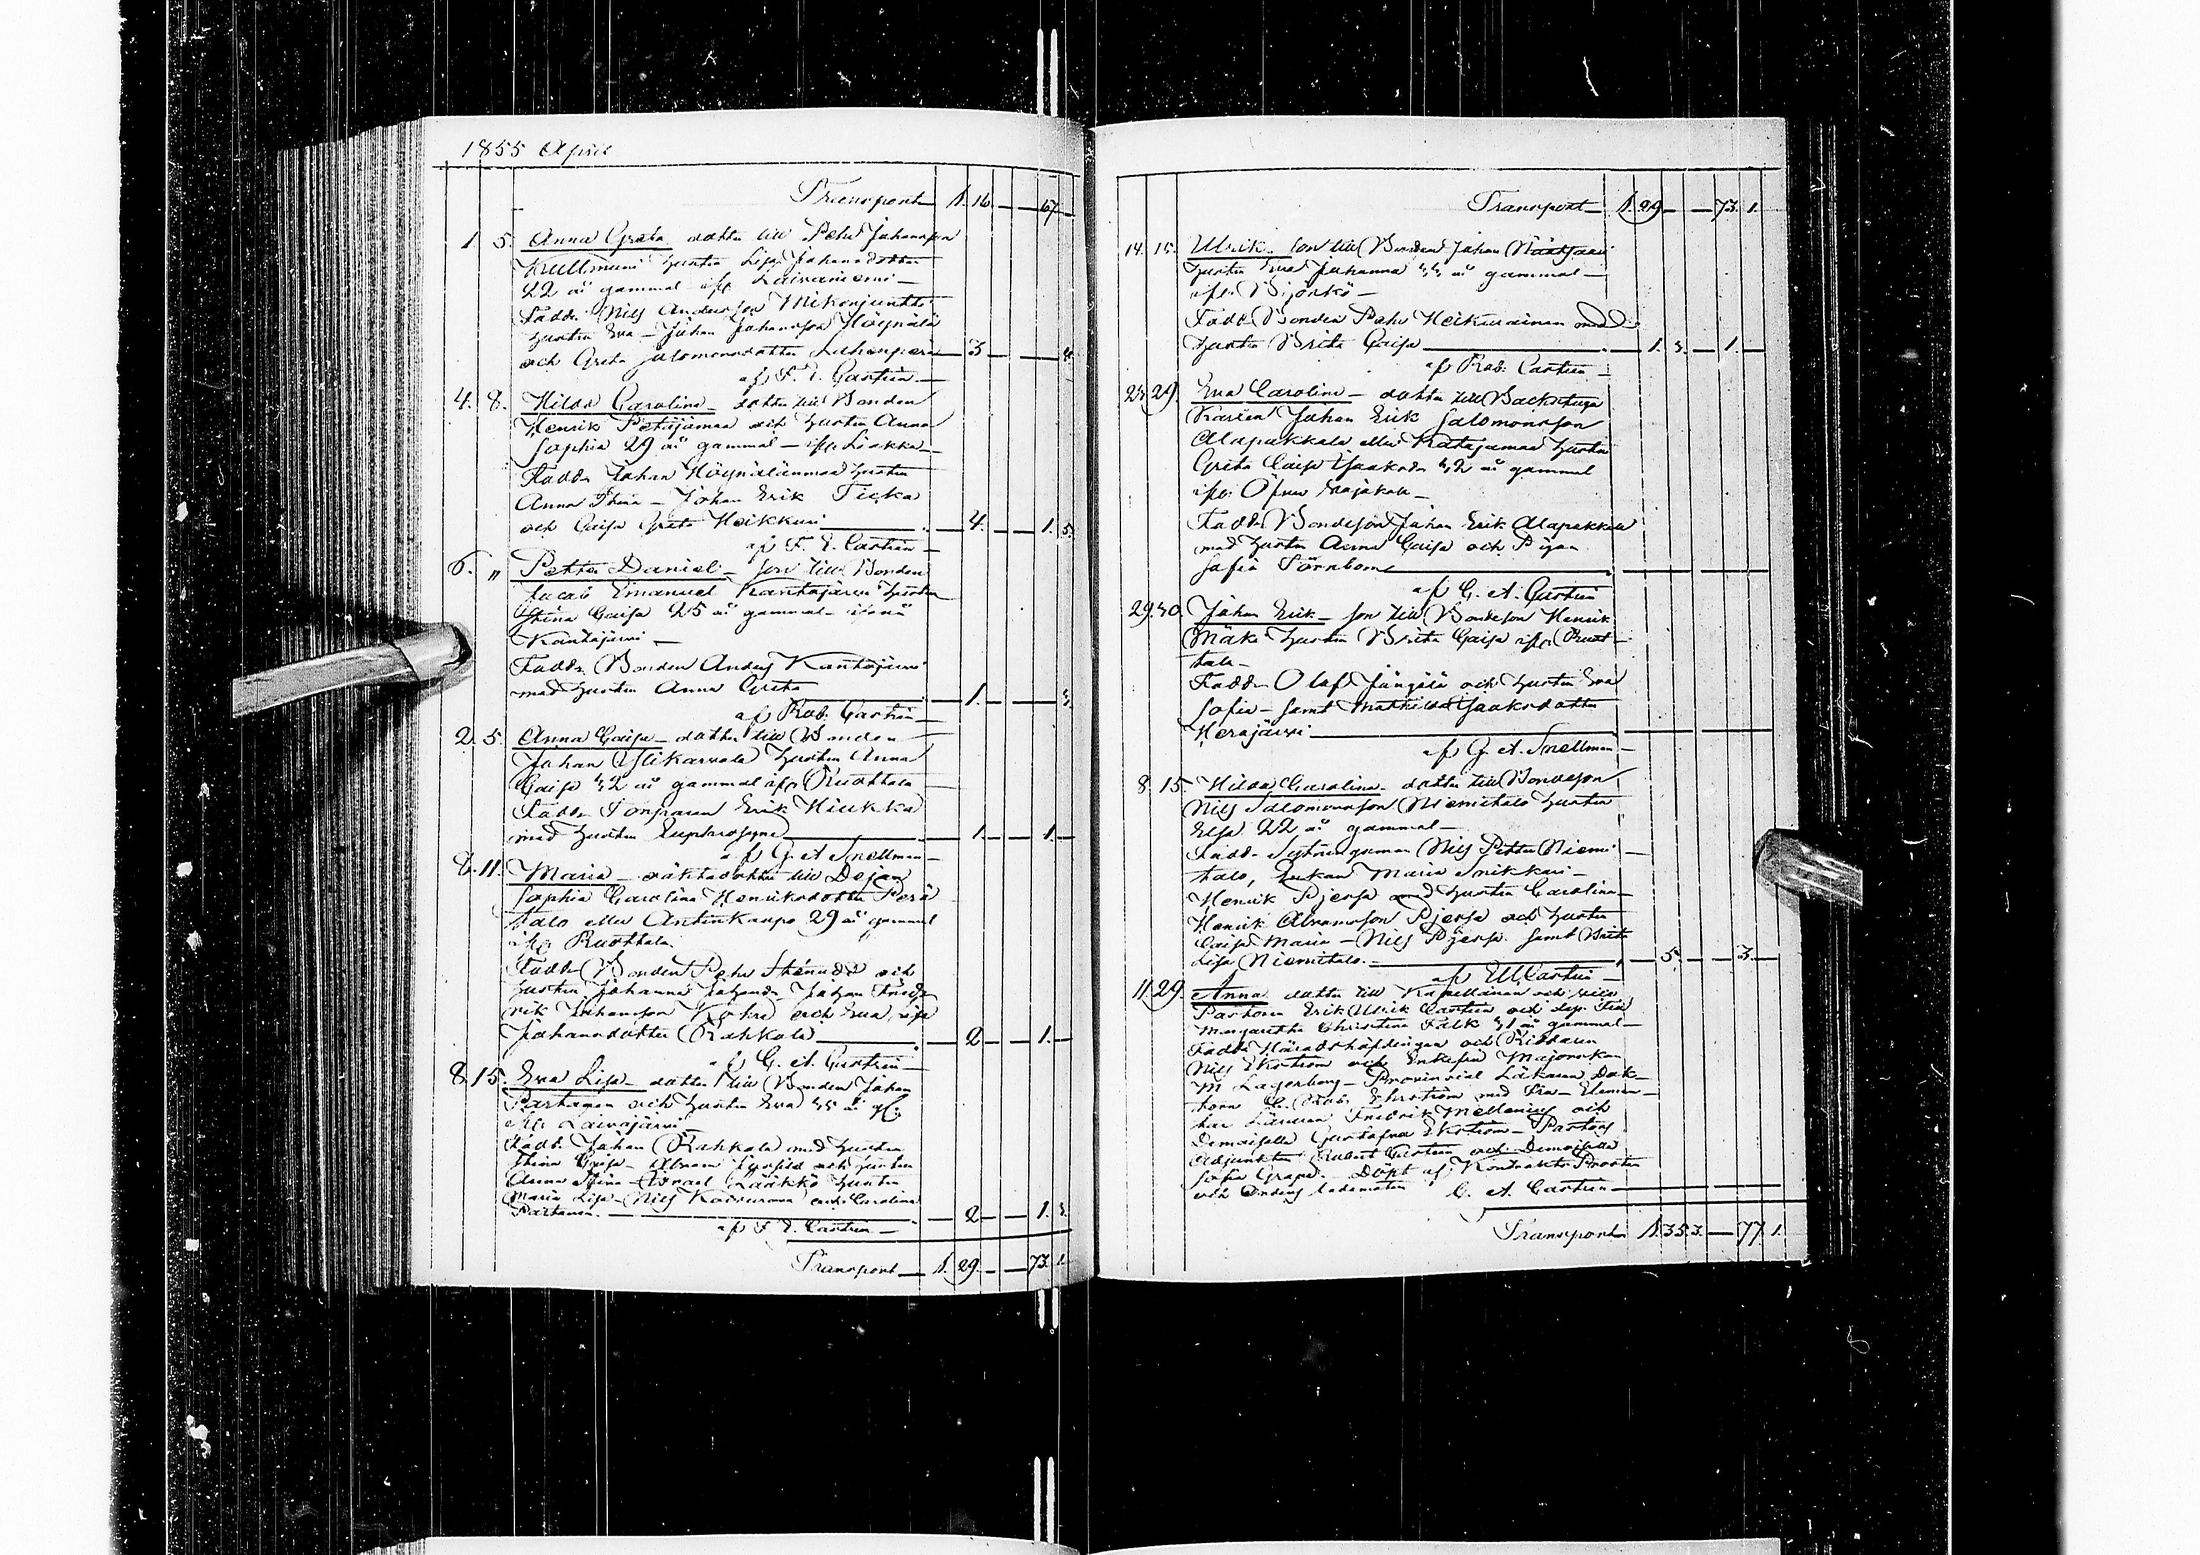 1855 April
Transport 1. 16. — — 67 —
1. 5. Anna Greta dotter till Pehr Johansson
Kullmuni hustru Lisa Johansdotter
22 år gammal ifr Laivaniemi —
Fadd. Nils Andersson Mikonjuntti
hustru Eva — Johan Johansson Höynälä
och Greta Salomonsdotter — 3 — —
af F. E. Castrén —
4. 8. Hilda Carolina — dotter till Bonden
Henrik Petäjämaa och hustru Anna
Sophia 29 år gammal — ifr. Liakka —
Fadd. Johan hustru
Anna Stina — Johan Erik
och Caisa Greta Heikkuri — 4. — — 1. 5.
af F. E. Castrén —
6. „ Petter Daniel — son till Bonden
Jacob Emanuel Kantojärvi hustru
Stina Caisa 25 år gammal —
Kantojärvi —
Fadd. Bonden Anders Kantojärvi
med hustru Anna Greta — 1. — —
af Rob. Castrén —
2. 5. Anna Caisa — dotter till Bonden
Johan Ylikarvala hustru Anna
Caisa 32 år gammal ifr Ruottala
Fadd. Erik Hiukka
med hustru Euphrosyne — 1. — — 1. —
af G. A. Snellman —
8. 11. Maria — oäkta dotter till
Sophia Carolina Henriksdotter Perä
talo eller Antinkaupo 29 år gammal
ifr Ruottala
Fadd. Bonden Pehr och
hustru Johanna Johan Fried
rik Johansson och Eva
Johansdotter Rahkala — 2 — — 1. —
af C. A. Castrén —
8. 15. Eva Lisa — dotter till Bonden Johan
Partanen och hustru Eva 35 år gl.
ifr. Laivajärvi —
Fadd. Johan Rahkala med hustru
Stina Caisa — Abram och hustru
Anna Stina — Israel Lääkkö hustru
Maria Lisa — Nils och Carolina
Partanen. — 2 — — 1. 3.
af F. E. Castrén —
Transport — 1. 29. — — 73. 1.
Transport — 1. 29 — — 73. 1.
14. 15. Ulrik. son till Bonden Johan
hustru Eva Johanna 33 år gammal —
ifr. Björkö —
Fadd. Bonden Pehr Heikurainen med
hustru Brita Caisa — 1. 3. — 1. —
af Rob. Castrén —
23. 29. Eva Carolina — dotter till Backstugu
Karlen Johan Erik Salomonsson
Alapakkala eller Katajamaa hustru
Greta Caisa Isaksdr 32 år gammal
ifr. Öfver Vojakala —
Fadd. Bondeson Johan Erik Alapakkala
med hustru Anna Caisa och Pigan
Sofia Törnbom —
af C. A. Castrén
29. 30. Johan Erik — son till Bondeson Henrik
Mäki hustru Brita Caisa ifr. Ruot-
tala —
Fadd. Olof Jängälä och hustru Eva
Sofia — samt Mathilda Isaksdotter
Herajärvi —
af G. A. Snellman —
8. 15. Hilda Carolina — dotter till Bondeson
Nils Salomonsson Niemitalo hustru
Elsa 22 år gammal —
Fadd. Nils Petter Niemi-
talo, Enkan Maria Snikkari —
Henrik Pjersa med hustru Carolina —
Henrik Abramsson Pjersa och hustru
Caisa Maria — Nils Pjersa samt Brita
Lisa Niemitalo. — 5. — 3. —
af E. U. Castrén —
11. 29. Anna dotter till Kapellanen och vice
Pastoren Erik Ulrik Castrén och dess Fru
Margaretha Christina Falk 31 år gammal —
Fadd. Häradshöfdingen och Riddaren
Nils Ekström och Enkefru Majorskan
M. Lagerborg — Provincial Läkaren Dok-
torn C. Rob. Ehrström med Fru — Elemen-
tar Läraren Fredrik Mellenius och
Demoiselle Gustafva Ekström — Pastors
Adjunkten Robert Castrén och Demoiselle
Sofia Grape. Döpt af Kontrakts Prosten
och Ordens Ledamoten C. A. Castrén —
Transport 1. 35. 3. — 77. 1.